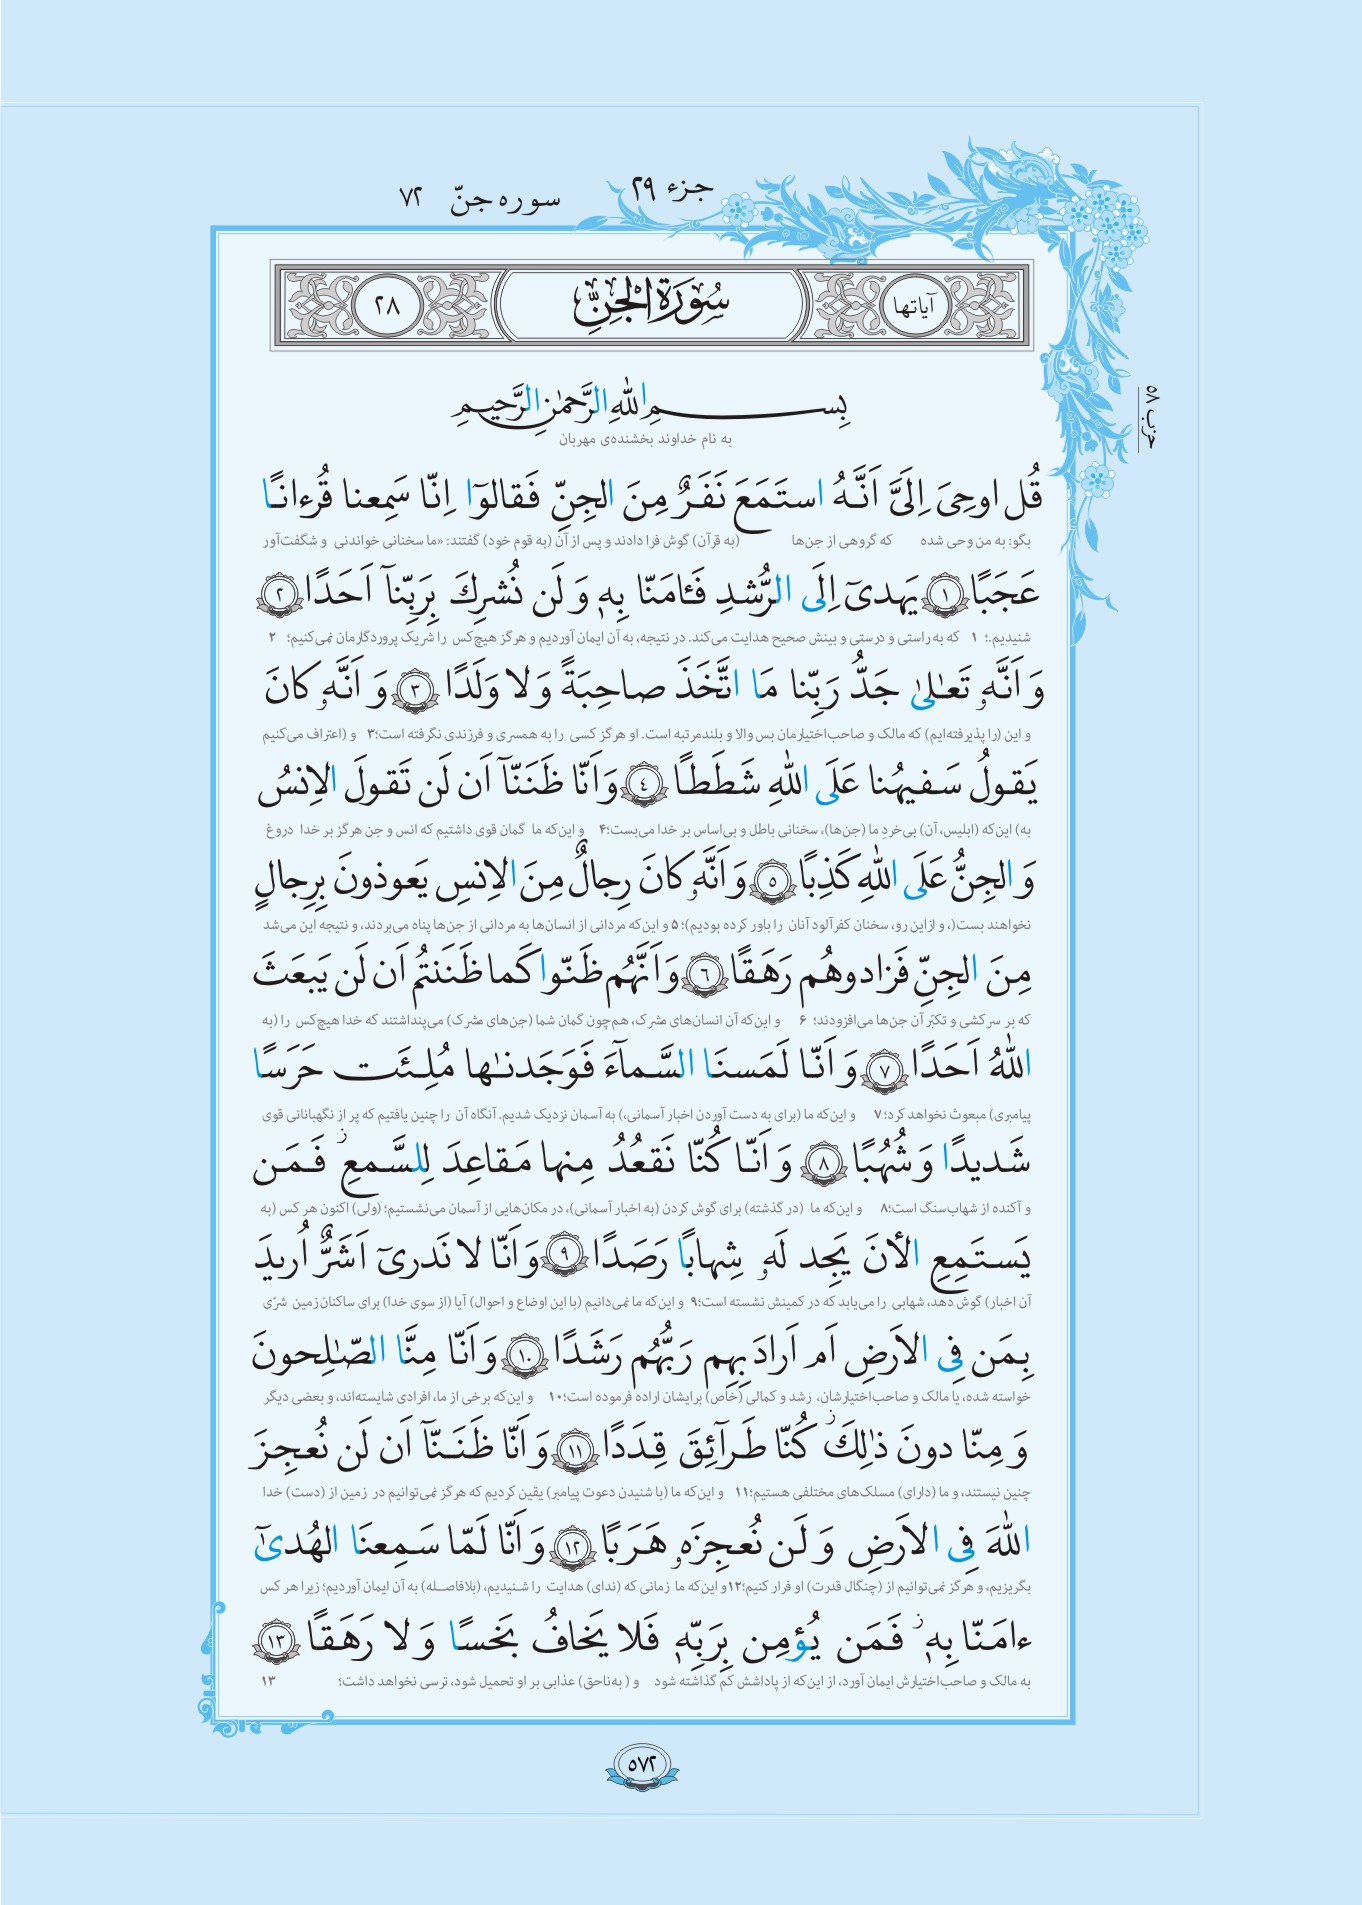 جزء ۲۹
سوره جنّ ۷۲
حزب ۵۸
آیاتها
سُورَةُ الْجِنِّ
۲۸
بِسمِ اللهِ الرَّحمٰنِ الرَّحیمِ
به نام خداوند بخشنده‌ی مهربان
قُل اوحِیَ اِلَیَّ اَنَّهُ استَمَعَ نَفَرٌ مِنَ الجِنِّ فَقالوٓا اِنّا سَمِعنا قُرءانًا
بگو: به من وحی شده که گروهی از جن‌ها (به قرآن) گوش فرا دادند و پس از آن (به قوم خود) گفتند: «ما سخنانی خواندنی و شگفت‌آور
عَجَبًا ﴿۱﴾ یَهدیٓ اِلَی الرُّشدِ فَـٔامَنّا بِهٖ وَ لَن نُشرِكَ بِرَبِّنآ اَحَدًا ﴿۲﴾
شنیدیم.؛ ۱ که به راستی و درستی و بینش صحیح هدایت می‌کند. در نتیجه، به آن ایمان آوردیم و هرگز هیچ‌کس را شریک پروردگارمان نمی‌کنیم؛ ۲
وَ اَنَّهٗ تَعٰلیٰ جَدُّ رَبِّنا مَا اتَّخَذَ صاحِبَةً وَ لا وَلَدًا ﴿۳﴾ وَ اَنَّهٗ كانَ
و این (را پذیرفته‌ایم) که مالک و صاحب‌اختیارمان بس والا و بلندمرتبه است. او هرگز کسی را به همسری و فرزندی نگرفته است؛۳ و (اعتراف می‌کنیم
یَقولُ سَفیهُنا عَلَی اللهِ شَطَطًا ﴿٤﴾ وَ اَنّا ظَنَنّآ اَن لَن تَقولَ الاِنسُ
به) این‌که (ابلیس، آن) بی‌خردِ ما (جن‌ها)، سخنانی باطل و بی‌اساس بر خدا می‌بست؛۴ و این‌که ما گمان قوی داشتیم که انس و جن هرگز بر خدا دروغ
وَ الجِنُّ عَلَی اللهِ كَذِبًا ﴿٥﴾ وَ اَنَّهٗ كانَ رِجالٌ مِنَ الاِنسِ یَعوذونَ بِرِجالٍ
نخواهند بست(، و ازاین رو، سخنان کفرآلود آنان را باور کرده بودیم)؛ ۵ و این‌که مردانی از انسان‌ها به مردانی از جن‌ها پناه می‌بردند، و نتیجه این می‌شد
مِنَ الجِنِّ فَزادوهُم رَهَقًا ﴿٦﴾ وَ اَنَّهُم ظَنّوا كَما ظَنَنتُم اَن لَن یَبعَثَ
که بر سرکشی و تکبّر آن جن‌ها می‌افزودند؛ ۶ و این‌که آن انسان‌های مشرک، هم‌چون گمان شما (جن‌های مشرک) می‌پنداشتند که خدا هیچ‌کس را (به
اللهُ اَحَدًا ﴿۷﴾ وَ اَنّا لَمَسنَا السَّمآءَ فَوَجَدنٰها مُلِئَت حَرَسًا
پیامبری) مبعوث نخواهد کرد؛ ۷ و این‌که ما (برای به دست آوردن اخبار آسمانی،) به آسمان نزدیک شدیم. آنگاه آن را چنین یافتیم که پر از نگهبانانی قوی
شَدیدًا وَ شُهُبًا ﴿۸﴾ وَ اَنّا كُنّا نَقعُدُ مِنها مَقاعِدَ لِلسَّمعِ ز فَمَن
و آکنده از شهاب‌سنگ است؛۸ و این‌که ما (در گذشته) برای گوش کردن (به اخبار آسمانی)، در مکان‌هایی از آسمان می‌نشستیم؛ (ولی) اکنون هر کس (به
یَستَمِعِ الأنَ یَجِد لَهٗ شِهابًا رَصَدًا ﴿۹﴾ وَ اَنّا لا نَدریٓ اَشَرٌّ اُریدَ
آن اخبار) گوش دهد، شهابی را می‌یابد که در کمینش نشسته است؛۹ و این‌که ما نمی‌دانیم (با این اوضاع و احوال) آیا (از سوی خدا) برای ساکنان زمین شرّی
بِمَن فِی الاَرضِ اَم اَرادَ بِهِم رَبُّهُم رَشَدًا ﴿۱۰﴾ وَ اَنّا مِنَّا الصّٰلِحونَ
خواسته شده، یا مالک و صاحب‌اختیارشان، رشد و کمالی (خاص) برایشان اراده فرموده است؛۱۰ و این‌که برخی از ما، افرادی شایسته‌اند، و بعضی دیگر
وَ مِنّا دونَ ذٰلِكَ ز كُنّا طَرآئِقَ قِدَدًا ﴿۱۱﴾ وَ اَنّا ظَنَنّآ اَن لَن نُعجِزَ
چنین نیستند، و ما (دارای) مسلک‌های مختلفی هستیم؛۱۱ و این‌که ما (با شنیدن دعوت پیامبر) یقین کردیم که هرگز نمی‌توانیم در زمین از (دست) خدا
اللهَ فِی الاَرضِ وَ لَن نُعجِزَهٗ هَرَبًا ﴿۱۲﴾ وَ اَنّا لَمّا سَمِعنَا الهُدیٰٓ
بگریزیم، و هرگز نمی‌توانیم از (چنگال قدرت) او فرار کنیم؛۱۲ و این‌که ما زمانی که (ندای) هدایت را شنیدیم، (بلافاصله) به آن ایمان آوردیم؛ زیرا هر کس
ءامَنّا بِهٖ ز فَمَن یُؤمِن بِرَبِّهٖ فَلا یَخافُ بَخسًا وَ لا رَهَقًا ﴿۱۳﴾
به مالک و صاحب‌اختیارش ایمان آورد، از این‌که از پاداشش کم گذاشته شود و ( به‌ناحق) عذابی بر او تحمیل شود، ترسی نخواهد داشت؛ ۱۳
۵۷۲